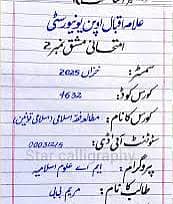 علامہ اقبال اوپن یونیورسٹی
امتحانی مشق نمبر 2
سمسٹر: خزاں 2025
کورس کوڈ: 4632
کورس کا نام: مطالعہ فقہ اسلامی (اسلامی قوانین)
سٹوڈنٹ آئی ڈی: 0003121/5
Star calligraphy
پروگرام: ایم اے علوم اسلامیہ
طالبہ کا نام: مریم بی بی